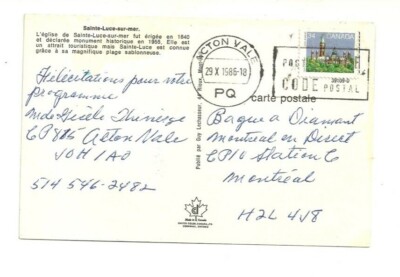 Sainte-Luce-sur-mer.
L'église de Sainte-Luce-sur-mer fut érigée en 1840
et déclarée monument historique en 1956. Elle est
un attrait touristique mais Sainte-Luce est connue
grâce à sa magnifique plage sablonneuse.
Félicitations pour votre
programme
Mde Gisèle
CP 815 Acton Vale
J0H 1A0
514 546-2482
ACTON VALE
29 X 1986-18
PQ
34 CANADA
CODE POSTAL
carte postale
Bague à Diamant
Montréal en Direct
CP 10 Station C
Montréal
H2L 4J8